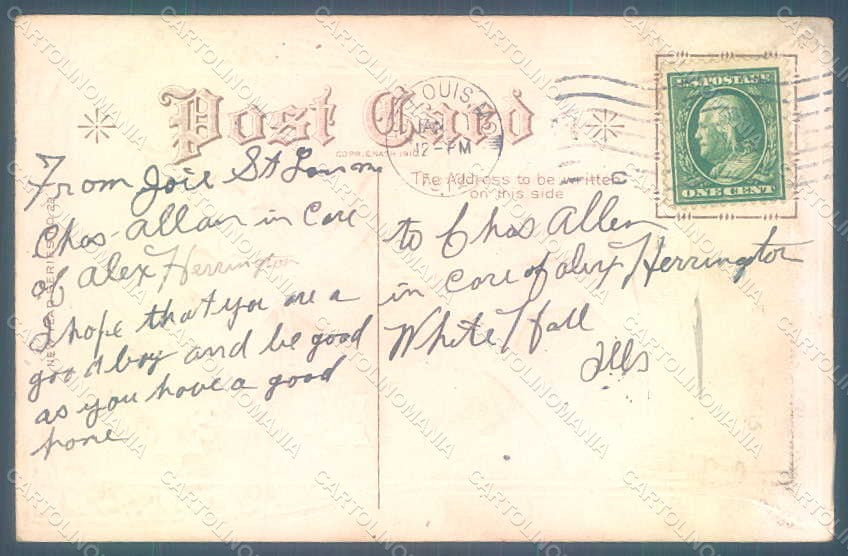 Post Card
COPR. E. NASH 191
The Address to be written
on this side
NEW YEAR SERIES NO. 22
LOUIS, MO
JAN
12-PM
U.S. POSTAGE
ONE CENT
From Joie St Louis mo
Chas Allan in Care
of Alex Herrington
I hope that you are a
good boy and be good
as you have a good
home
to Chas Allen
in care of alex Herrington
White Hall
Ills
CARTOLINOMANIA